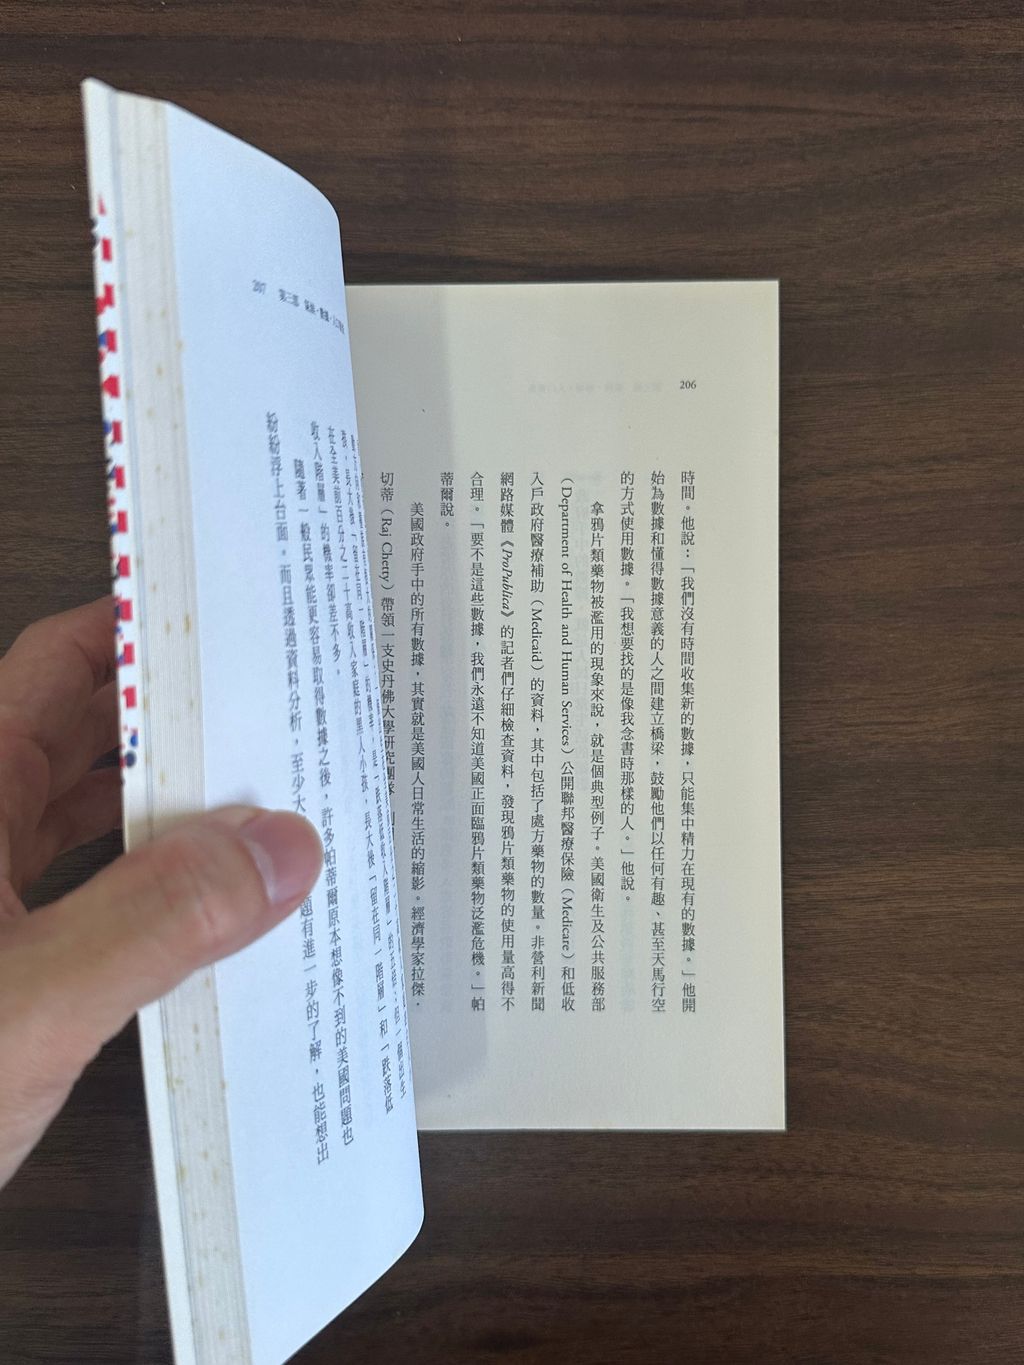 206
時間。他說：「我們沒有時間收集新的數據，只能集中精力在現有的數據。」他開
始為數據和懂得數據意義的人之間建立橋梁，鼓勵他們以任何有趣、甚至天馬行空
的方式使用數據。「我想要找的是像我念書時那樣的人。」他說。
拿鴉片類藥物被濫用的現象來說，就是個典型例子。美國衛生及公共服務部
（Department of Health and Human Services）公開聯邦醫療保險（Medicare）和低收
入戶政府醫療補助（Medicaid）的資料，其中包括了處方藥物的數量。非營利新聞
網路媒體《ProPublica》的記者們仔細檢查資料，發現鴉片類藥物的使用量高得不
合理。「要不是這些數據，我們永遠不知道美國正面臨鴉片類藥物泛濫危機。」帕
蒂爾說。
美國政府手中的所有數據，其實就是美國人日常生活的縮影。經濟學家拉傑．
切蒂（Raj Chetty）帶領一支史丹佛大學研究團隊
207 第三部
」的機率，是「跌落低收入階層」的五倍；但一個出生
在全美前百分之二十高收入家庭的黑人小孩，長大後「留在同一階層」和「跌落低
收入階層」的機率卻差不多。
隨著一般民眾能更容易取得數據之後，許多帕蒂爾原本想像不到的美國問題也
紛紛浮上台面。而且透過資料分析，至少大 題有進一步的了解，也能想出